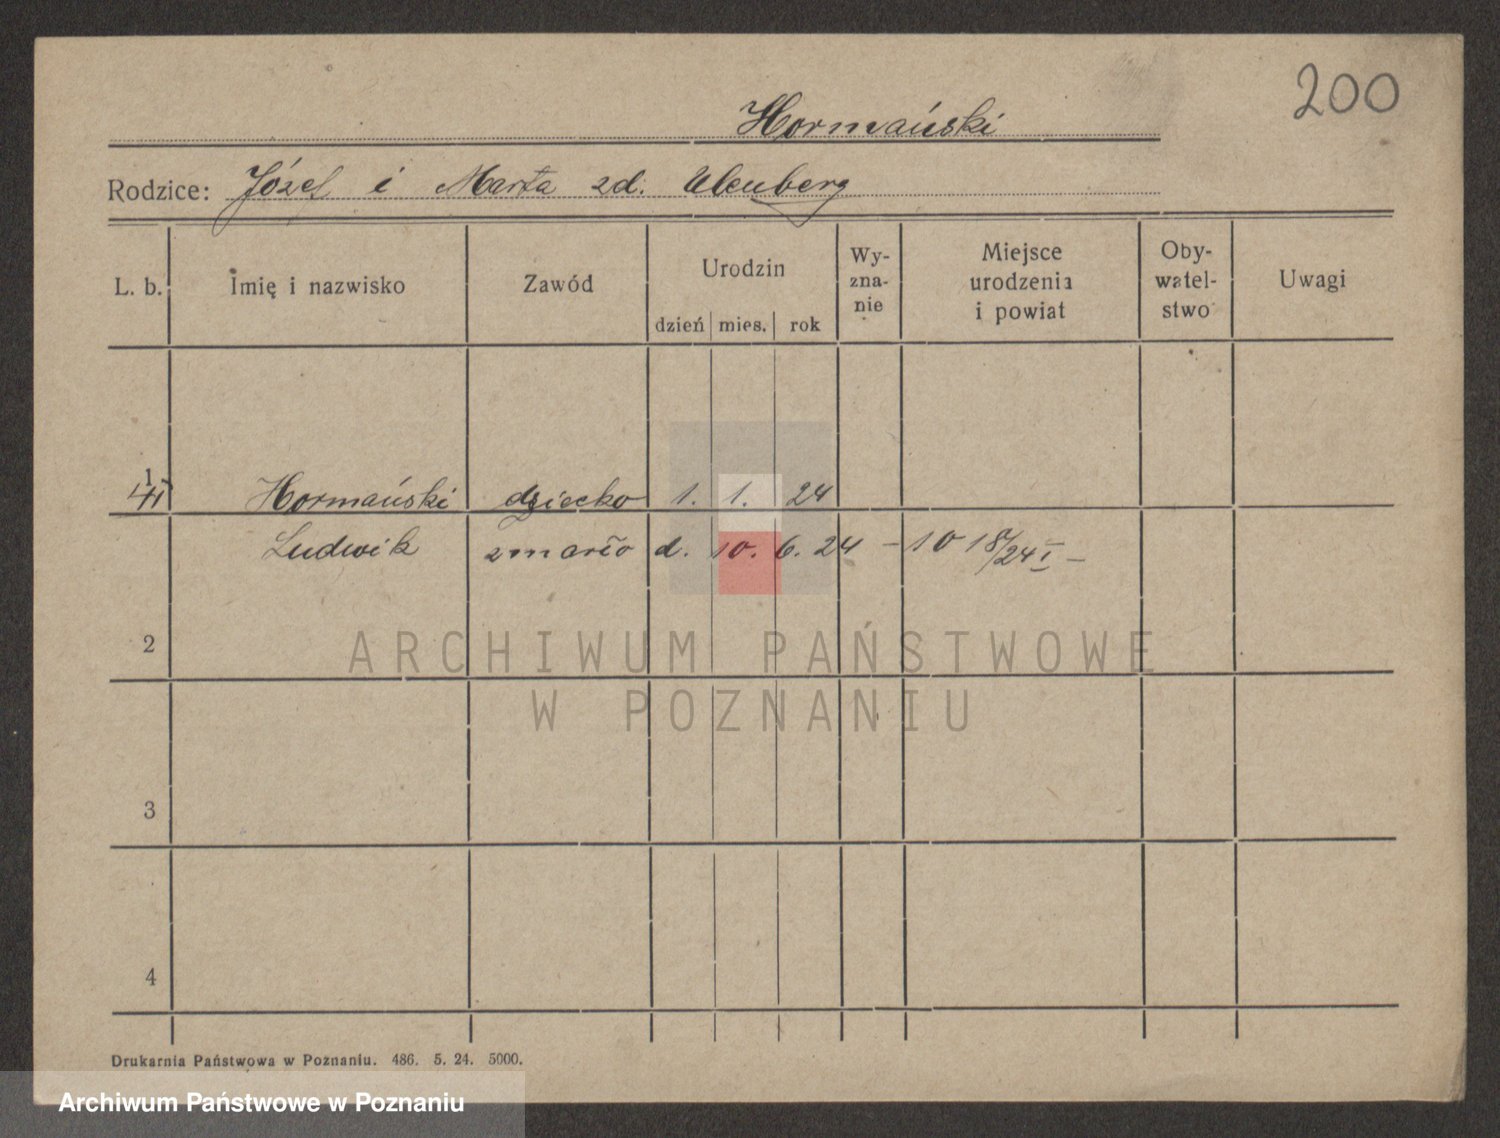 200
Hormański
Rodzice: Józef i Marta zd. Ulenberg
L. b. Imię i nazwisko Zawód Urodzin dzień mies. rok Wy-zna-nie Miejsce urodzenia i powiat Oby-watel-stwo Uwagi
1 Hormański dziecko 1. 1. 24
Ludwik zmarło d. 10. 6. 24 – 10 18/24 I –
2
ARCHIWUM PAŃSTWOWE
W POZNANIU
3
4
Drukarnia Państwowa w Poznaniu. 486. 5. 24. 5000.
Archiwum Państwowe w Poznaniu